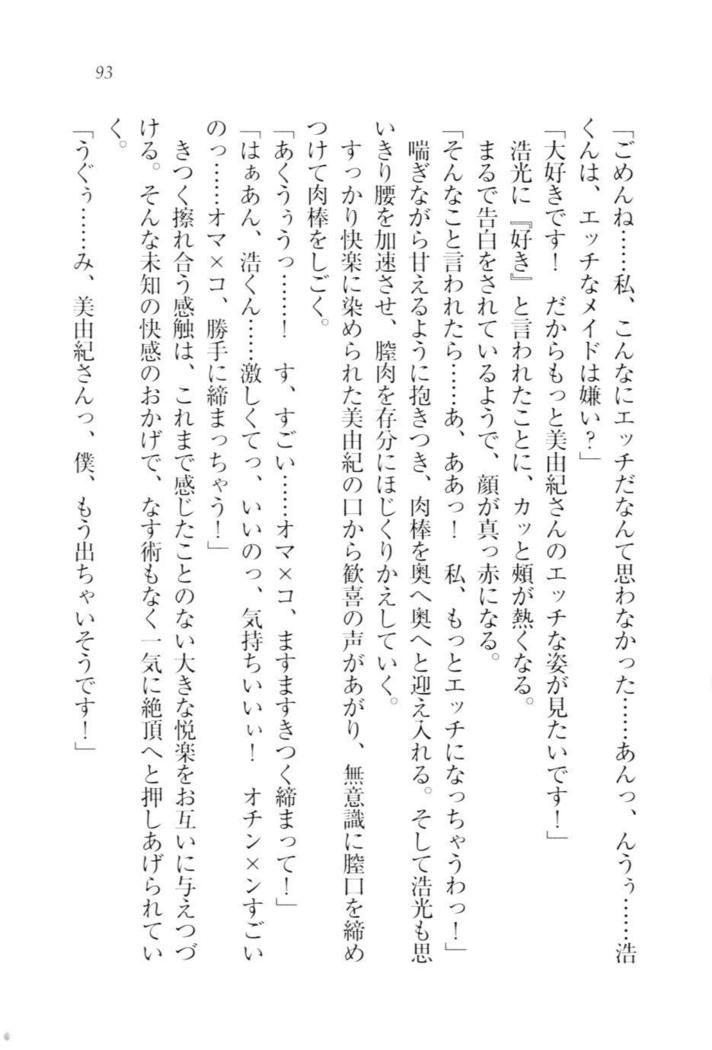 93
「ごめんね……私、こんなにエッチだなんて思わなかった……あんっ、んうぅ……浩
くんは、エッチなメイドは嫌い？」
「大好きです！　だからもっと美由紀さんのエッチな姿が見たいです！」
　浩光に『好き』と言われたことに、カッと頰が熱くなる。
　まるで告白をされているようで、顔が真っ赤になる。
「そんなこと言われたら……あ、ああっ！　私、もっとエッチになっちゃうわっ！」
　喘ぎながら甘えるように抱きつき、肉棒を奥へ奥へと迎え入れる。そして浩光も思
いきり腰を加速させ、膣肉を存分にほじくりかえしていく。
　すっかり快楽に染められた美由紀の口から歓喜の声があがり、無意識に膣口を締め
つけて肉棒をしごく。
「あくうぅうっ……！　す、すごい……オマ×コ、ますますきつく締まって！」
「はぁあん、浩くん……激しくてっ、いいのっ、気持ちいいぃ！　オチン×ンすごい
のっ……オマ×コ、勝手に締まっちゃう！」
　きつく擦れ合う感触は、これまで感じたことのない大きな悦楽をお互いに与えつづ
ける。そんな未知の快感のおかげで、なす術もなく一気に絶頂へと押しあげられてい
く。
「うぐぅ……み、美由紀さんっ、僕、もう出ちゃいそうです！」